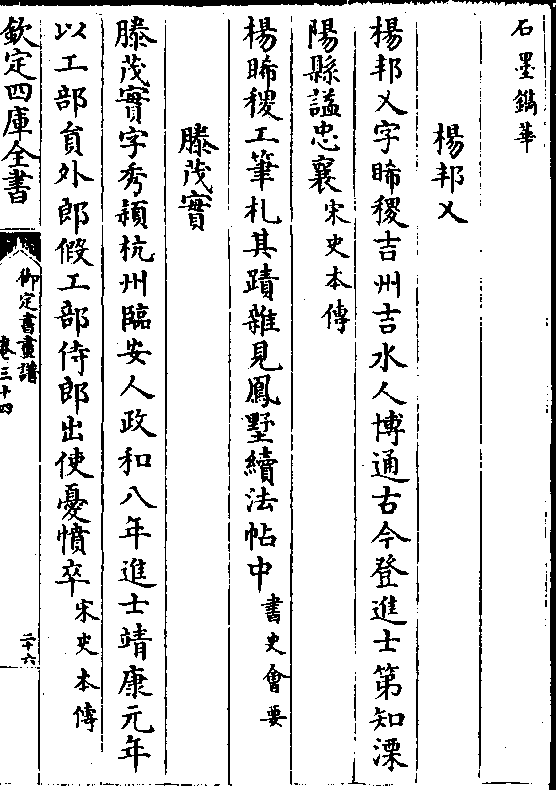 石墨鐫華
楊邦乂
楊邦乂字晞稷吉州吉水人博通古今登進士第知溧
陽縣謚忠襄宋史本傳
楊晞稷工筆札其蹟雜見鳳墅續法帖中書史會要
滕茂實
滕茂實字秀穎杭州臨安人政和八年進士靖康元年
以工部貟外郎假工部侍郎出使憂憤卒宋史本傳
欽定四庫全書
御定書畫譜
卷三十四
二十六